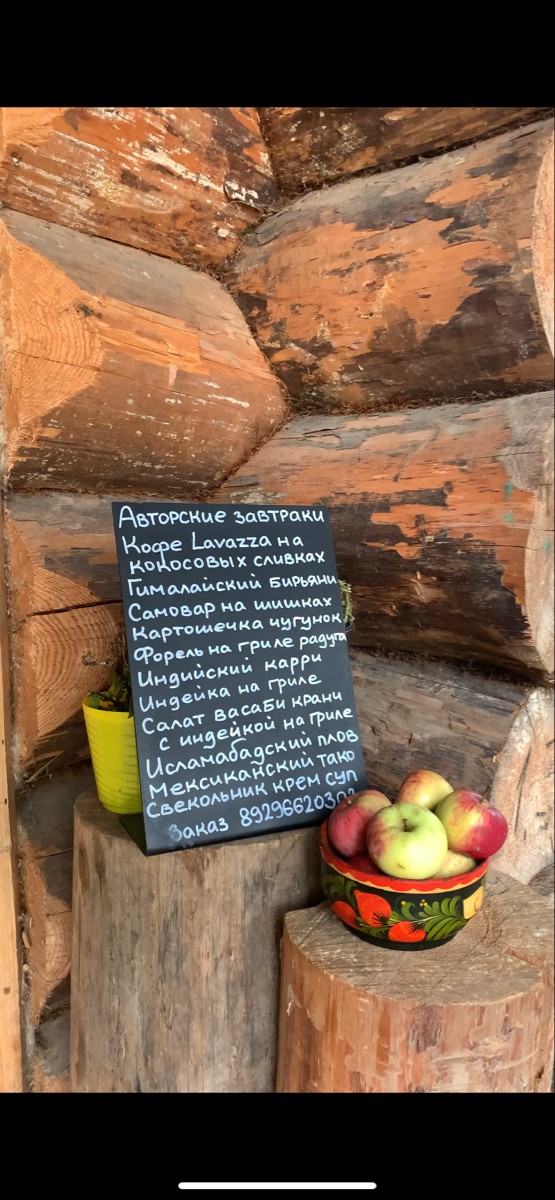 Авторские завтраки
Кофе Lavazza на
кокосовых сливках
Гималайский бирьяни
Самовар на шишках
Картошечка чугунок
Форель на гриле радуга
Индийский карри
Индейка на гриле
Салат васаби кранч
с индейкой на гриле
Исламабадский плов
Мексиканский тако
Свекольник крем суп
Заказ